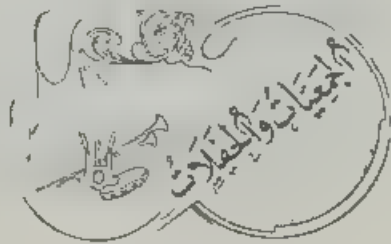 الجمعيات والحفلات